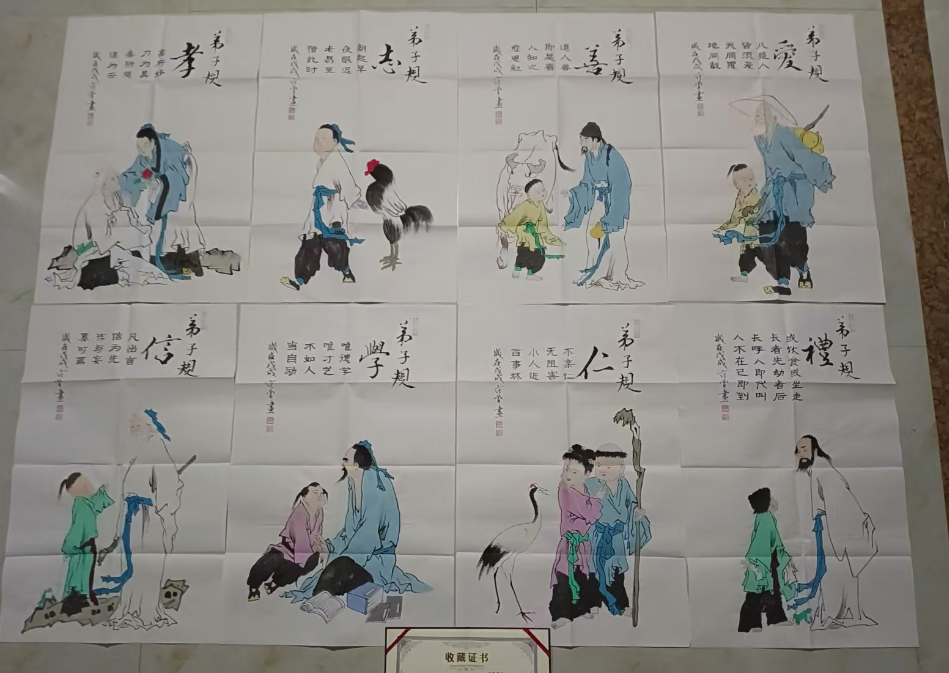 弟子规
孝
亲所好
力为具
亲所恶
谨为去
弟子规
志
朝起早
夜眠迟
老易至
惜此时
弟子规
善
道人善
即是善
人知之
愈思勉
弟子规
愛
凡是人
皆须爱
天同覆
地同载
弟子规
信
凡出言
信为先
诈与妄
奚可焉
弟子规
學
唯德学
唯才艺
不如人
当自励
弟子规
仁
不亲仁
无限害
小人近
百事坏
弟子规
禮
或饮食或坐走
长者先幼者后
长呼人即代叫
人不在己即到
收藏证书